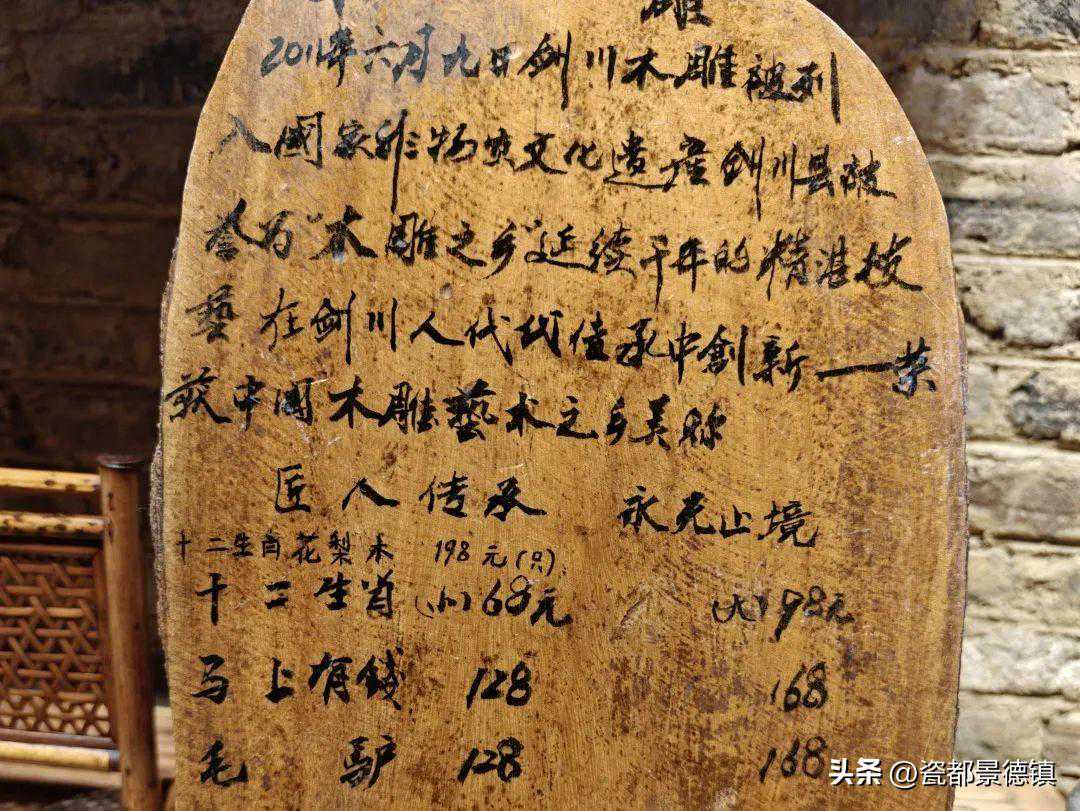 雕
2011年六月九日剑川木雕被列
入國家非物质文化遗产剑川县被
誉为"木雕之乡"延续千年的精湛技
藝在剑川人代代传承中創新——荣
获中国木雕藝术之乡美称
匠人传承 永无止境
十二生肖花梨木 198元(只)
十二生肖(小)68元 (大)98元
马上有錢 128 168
毛驴 128 168
头条 @瓷都景德镇